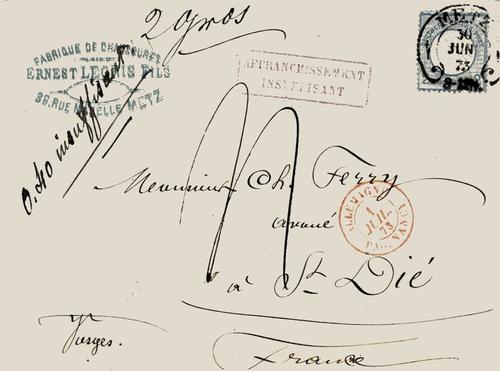 2 Gros
METZ
30
JUN
73
FABRIQUE DE CHAUSSURES
ERNEST
FILS
METZ
AFFRANCHISSEMENT
INSUFFISANT
0.40 insuffisant
Monsieur Ch. Ferry
avoué
à St Dié
ALLEMAGNE
1
JUIL.
73
NANCY
Vosges.
France